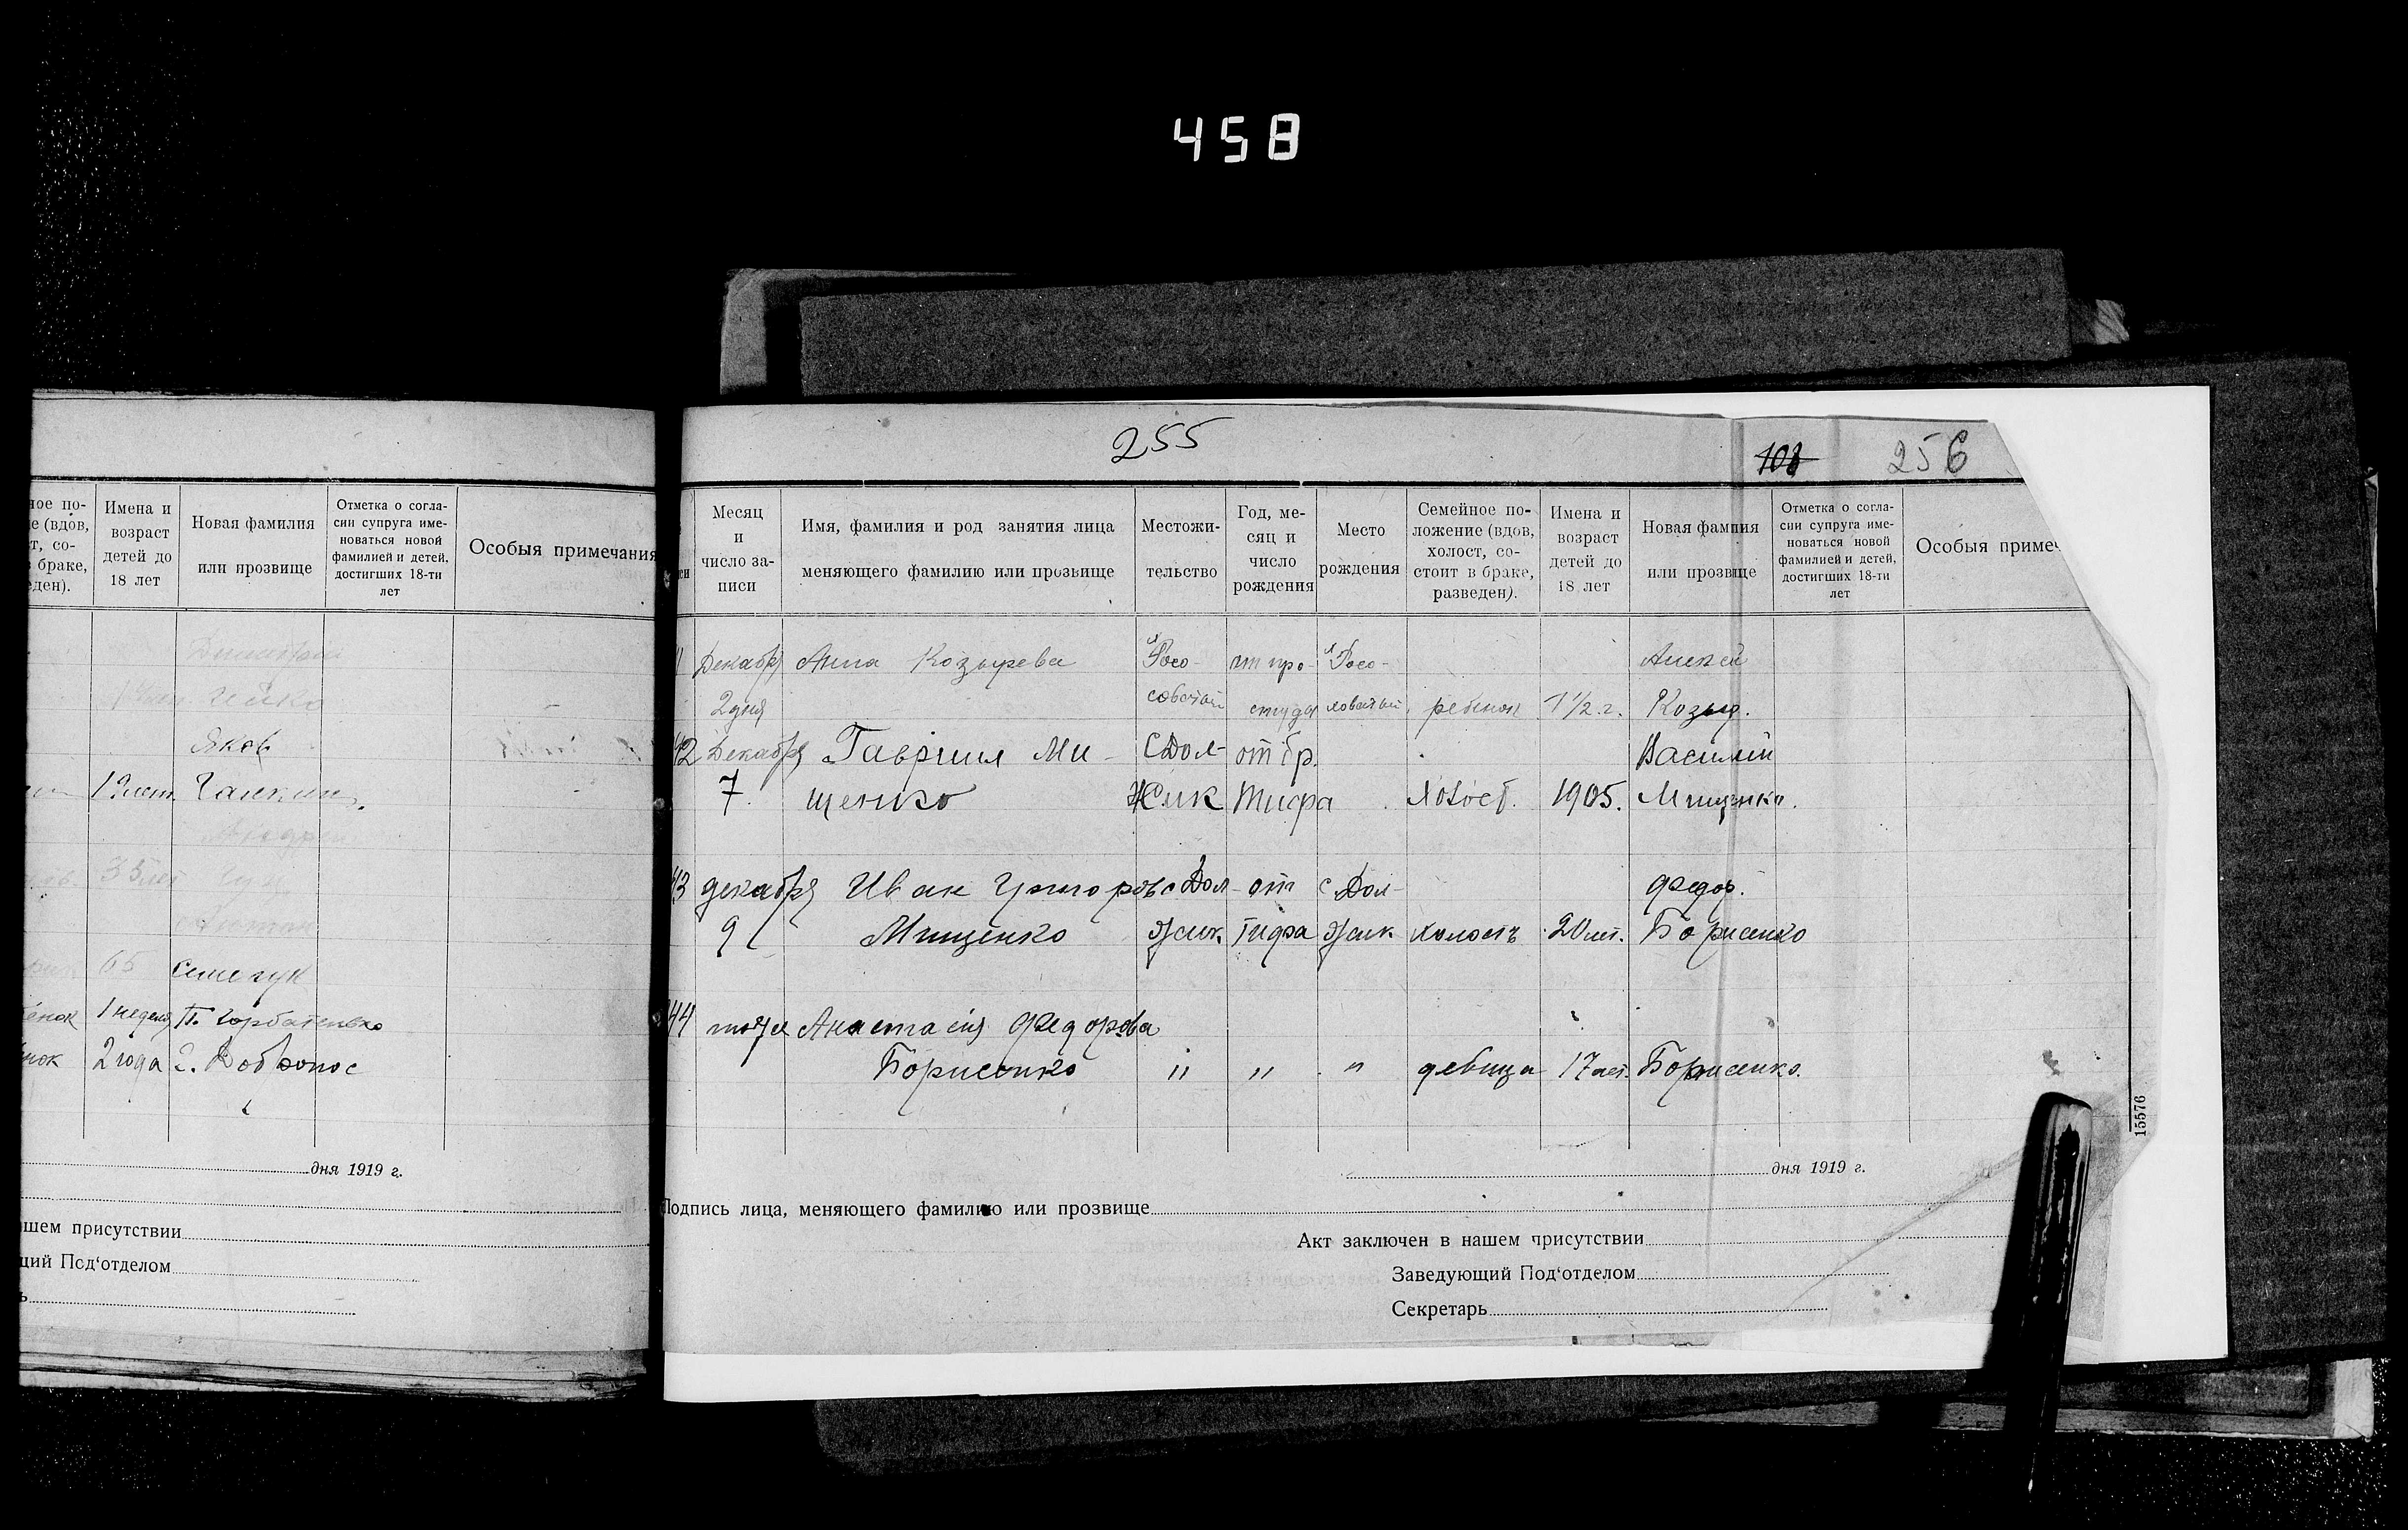 458
ное по-
е (вдов,
т, со-
браке,
еден).
Имена и
возраст
детей до
18 лет
Новая фамилия
или прозвище
Отметка о согла-
сии супруга име-
новаться новой
фамилией и детей,
достигших 18-ти
лет
Особыя примечания
Яков
Галкин.
35 лет
65
Семечук
енок 1 неделя П. Горбатенько
нок 2 года
дня 1919 г.
ашем присутствии
щий Под‘отделом
ь
255
108
256
си
Месяц
и
число за-
писи
Имя, фамилия и род занятия лица
меняющего фамилию или прозвище
Местожи-
тельство
Год, ме-
сяц и
число
рождения
Место
рождения
Семейное по-
ложение (вдов,
холост, со-
стоит в браке,
разведен).
Имена и
возраст
детей до
18 лет
Новая фамилия
или прозвище
Отметка о согла-
сии супруга име-
новаться новой
фамилией и детей,
достигших 18-ти
лет
Особыя примеч
1 Декабр Анна Козырева от про- Алексей
2 дня студы ребенок 1 1/2 г. Козыр.
42 Декабря Гавриил Ми- С Дол- от бр. Василий
7. щенко жик тифа Холост. 1905. Мищенко.
43 декабря Иван Григоров с Дол- от с Дол- Федор.
9 Мищенко жик тифа жик холостъ 20 лет. Борисенко
44 тоже Анастасия Федорова
Борисенко " " " девица 17 лет. Борисенко.
дня 1919 г.
Подпись лица, меняющего фамилию или прозвище
Акт заключен в нашем присутствии
Заведующий Под‘отделом
Секретарь
15576